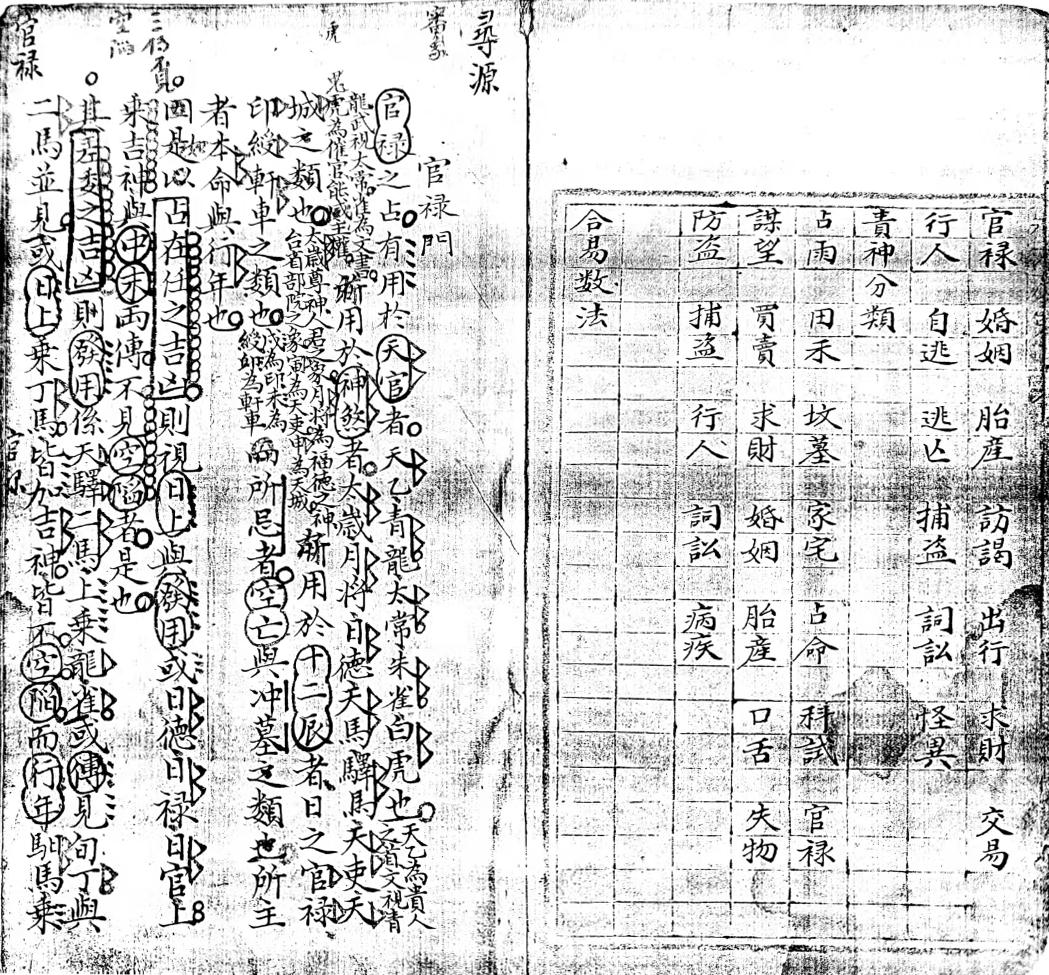 官禄 婚姻 胎産 訪謁 出行 求財 交易
行人 自逃 逃亡 捕盗 詞訟 怪異
貴神分類
占雨 田禾 坟墓 家宅 占命 科試 官禄
謀望 買賣 求財 婚姻 胎産 口舌 失物
防盗 捕盗 行人 詞訟 病疾
合易数法
尋源
官禄門
官禄之占有用於天官者天乙青龍太常朱雀白虎也天乙為貴人
之首文視青
龍武視太常雀為文書
鬼虎為催官能成主權
所用於神煞者太歲月将日德天馬驛馬天吏天
城之類也太歲尊神人君之象月将為福德之神
台省部院之象寅為天吏申為天城
所用於十二辰者日之官禄
印綬軒車之類也戌為印未為
綬卯為軒車
所忌者空亡與冲墓之類也所主
者本命與行年也
是以占在任之吉凶則視日上與發用或日德日禄日官上
乗吉神與中末两傳不見空陷者是也
其差委之吉凶則發用係天驛二馬上乗龍雀或傳見旬丁與
二馬並見或日上乗丁馬皆加吉神皆不空陷而行年馹馬乗
官禄